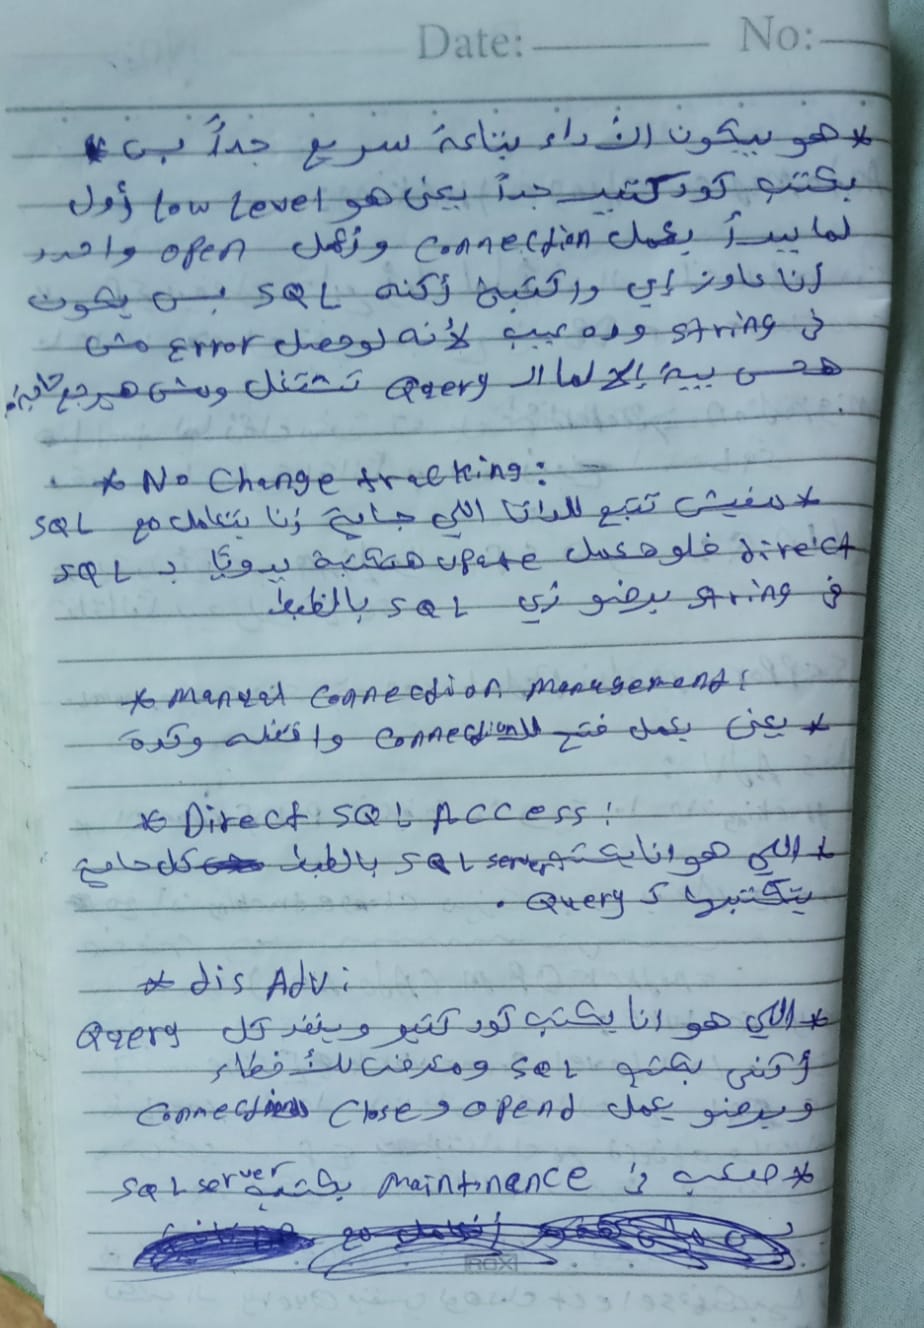 Date: No:
* هو بيكون الأداء بتاعة سريع جداً ب
بكتب كود كتيير جداً يعني هو low Level أول
لما يبدأ يعمل connection وأعمل open واحدد
أنا عاوز إي واكتبة أكنه SQL بس يكون
في string وده عيب لأنه لوحصل error مش
هحس بيه إلا لما الـ Query تشتغل ومش هيرجع
* No Change tracking:
* مفيش تتبع للداتا اللي جاية أنا بتعامل مع SQL
direct فلو هعمل upate هتكتبة يدويًا بـ SQL
في string برضو زي SQL بالظبط
* manual connection management:
* يعني بعمل فتح للـ connection واقفله وكدة
* Direct SQL Access:
* اللي هو انا بكتب SQL server بالظبط كل حاجة
بتكتبها كـ Query .
* dis Adv:
* اللي هو انا بكتب كود كتير وبنفذ كل Query
أكني بكتب SQL ومعرفش الأخطاء
وبرضو بعمل opend و close connection
* صعب في maintinance بكتبة SQL server